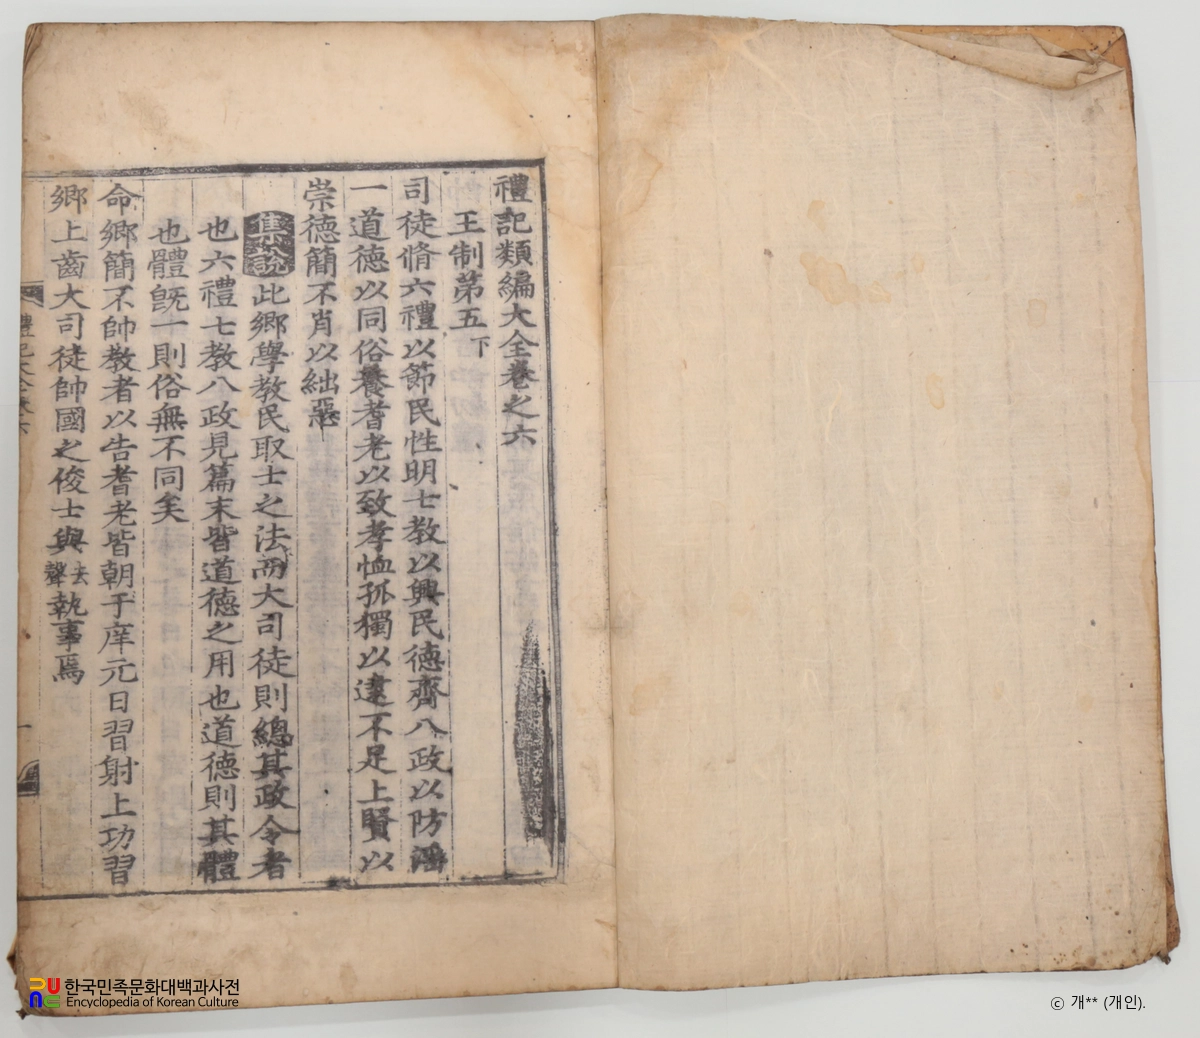 禮記類編大全卷之六
王制第五下
司徒脩六禮以節民性明七教以興民德齊八政以防淫
一道德以同俗養耆老以致孝恤孤獨以逮不足上賢以
崇德簡不肖以絀惡
集說此鄉學教民取士之法而大司徒則總其政令者
也六禮七教八政見篇末皆道德之用也道德則其體
也體旣一則俗無不同矣
命鄉簡不帥教者以告耆老皆朝于庠元日習射上功習
鄉上齒大司徒帥國之俊士與去聲執事焉
한국민족문화대백과사전
Encyclopedia of Korean Culture
ⓒ 개** (개인).